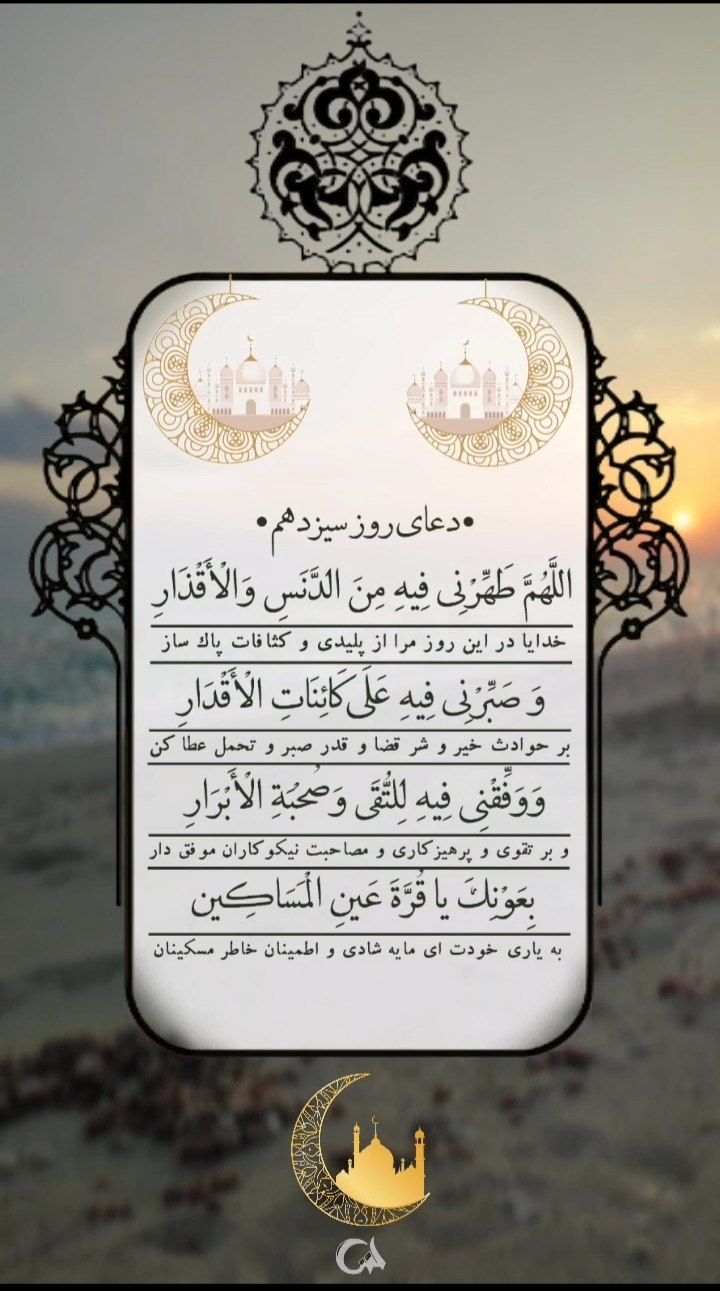 •دعای روز سیزدهم•
اللَّهُمَّ طَهِّرْنِی فِیهِ مِنَ الدَّنَسِ وَالْأَقْذَارِ
خدایا در این روز مرا از پلیدی و کثافات پاك ساز
وَ صَبِّرْنِی فِیهِ عَلَی کَائِنَاتِ الْأَقْدَارِ
بر حوادث خیر و شر قضا و قدر صبر و تحمل عطا کن
وَوَفِّقْنِی فِیهِ لِلتُّقَی وَصُحْبَةِ الْأَبْرَارِ
و بر تقوی و پرهیزکاری و مصاحبت نیکوکاران موفق دار
بِعَوْنِكَ یا قُرَّةَ عَینِ الْمَسَاکِین
به یاری خودت ای مایه شادی و اطمینان خاطر مسکینان